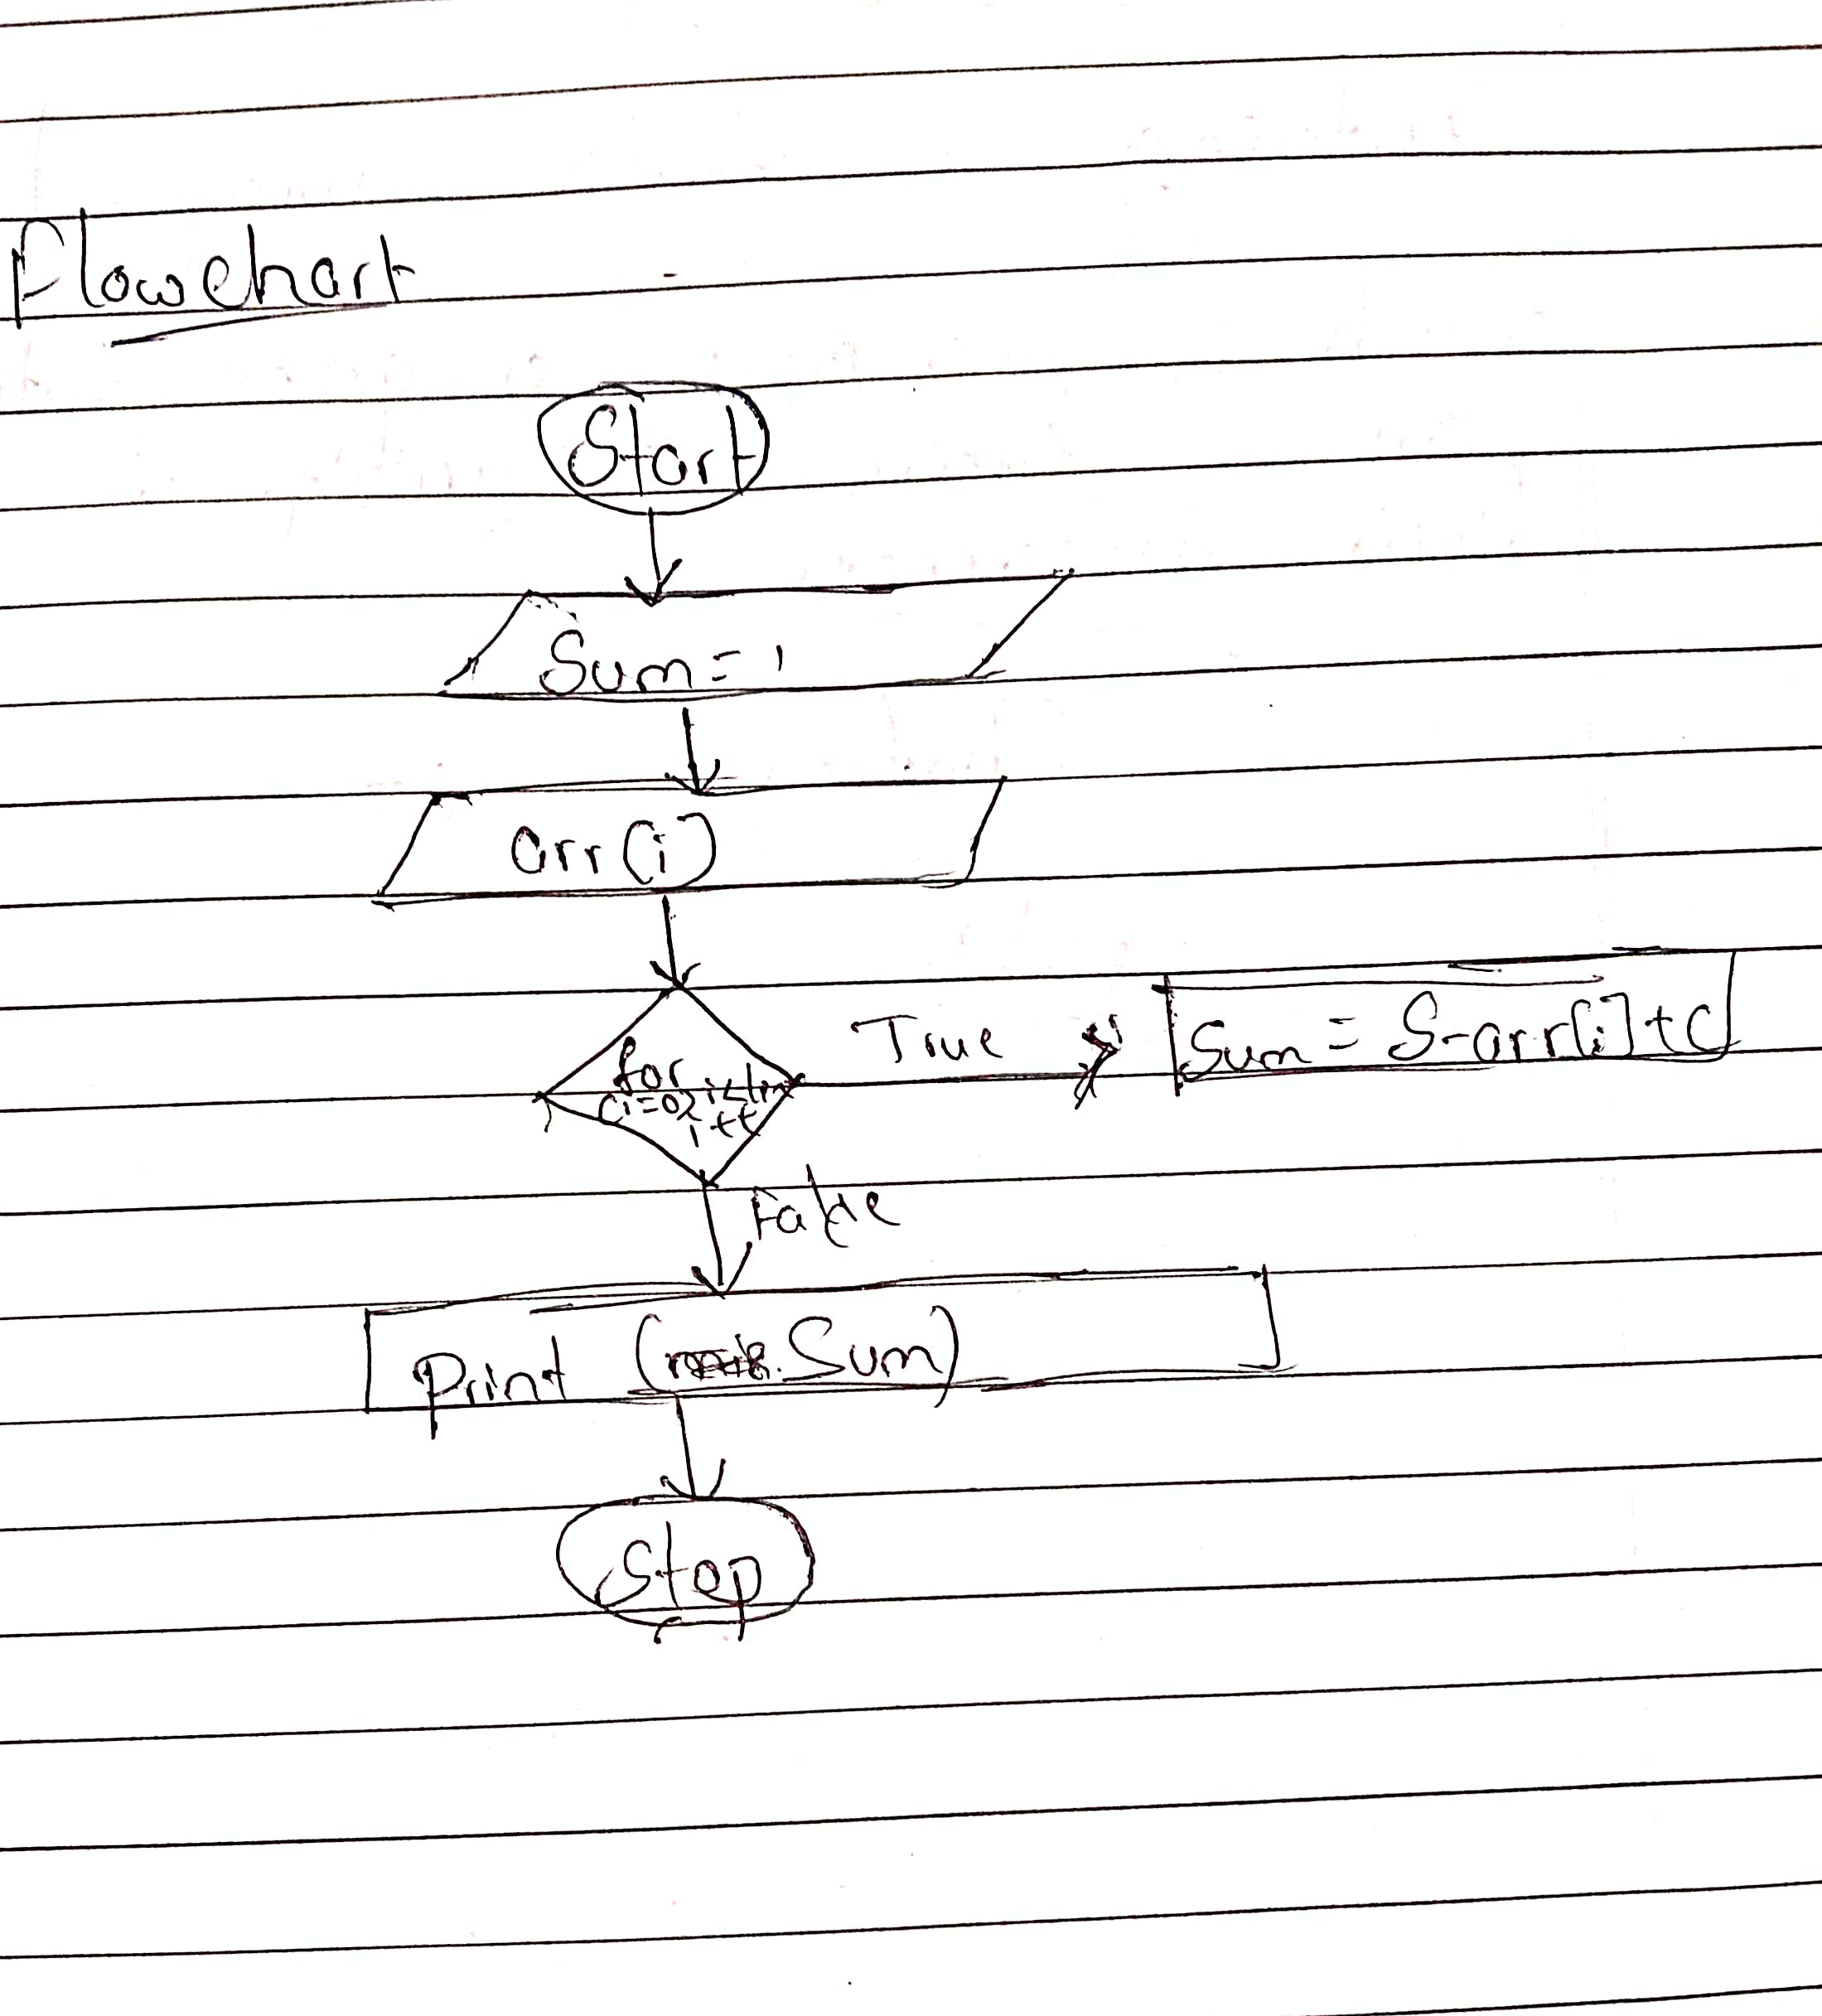 Flowchart
Start
Sum = 1
arr(i)
for
(i=0;
i++
True
Sum = S-arr[i]+C
False
Print ( Sum)
Stop